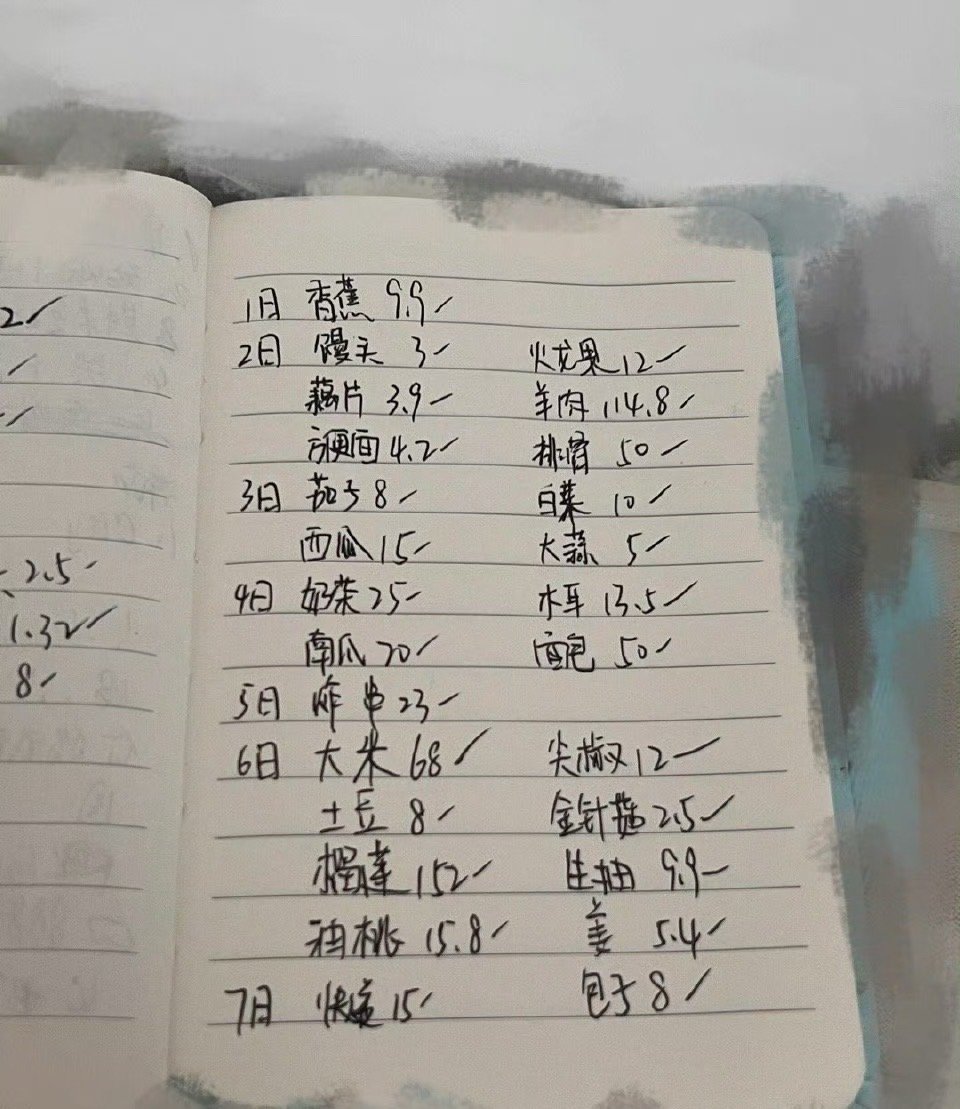 2✓
✓
✓
2.5
1.32✓
8✓
1日 香蕉 9.9✓
2日 馒头 3✓ 火龙果 12✓
藕片 3.9✓ 羊肉 114.8✓
方便面 4.2✓ 排骨 50✓
3日 茄子 8✓ 白菜 10✓
西瓜 15✓ 大蒜 5✓
4日 奶茶 25✓ 木耳 13.5✓
南瓜 20✓ 面包 50✓
5日 炸串 23✓
6日 大米 68✓ 尖椒 12✓
土豆 8✓ 金针菇 2.5✓
榴莲 152✓ 生抽 9.9✓
油桃 15.8✓ 姜 5.4✓
7日 15✓ 包子 8✓